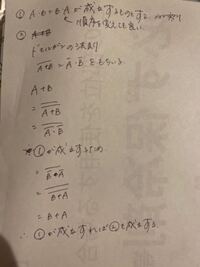 ① A・B = B・A が成立するものとする
順序を変えても良い
②
ド・モルガンの法則
\overline{A+B} = \overline{A}・\overline{B} をもちいる
A + B
= \overline{\overline{A+B}}
= \overline{\overline{A}・\overline{B}}
①が成立するため
= \overline{\overline{B}・\overline{A}}
= \overline{\overline{B+A}}
= B + A
∴ ①が成立すれば②も成立する